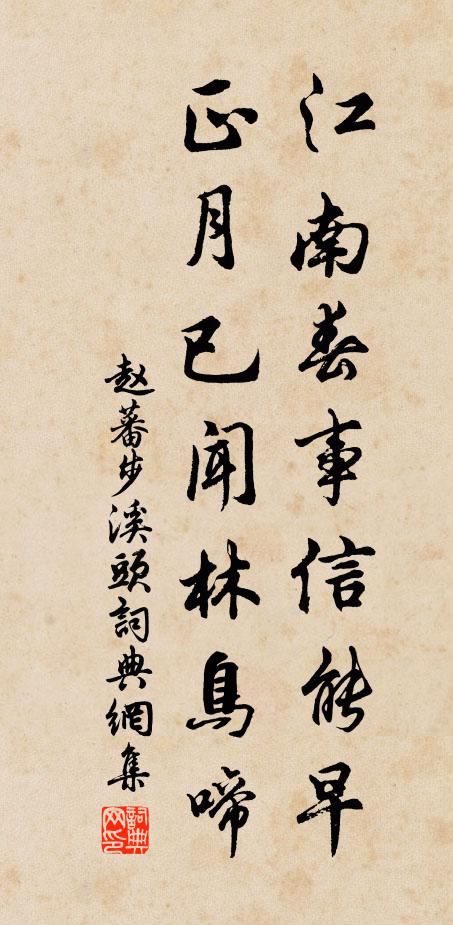 江南春事信能早
正月已闻林鳥啼
赵蕃步溪頭詞典網集
詞典网印